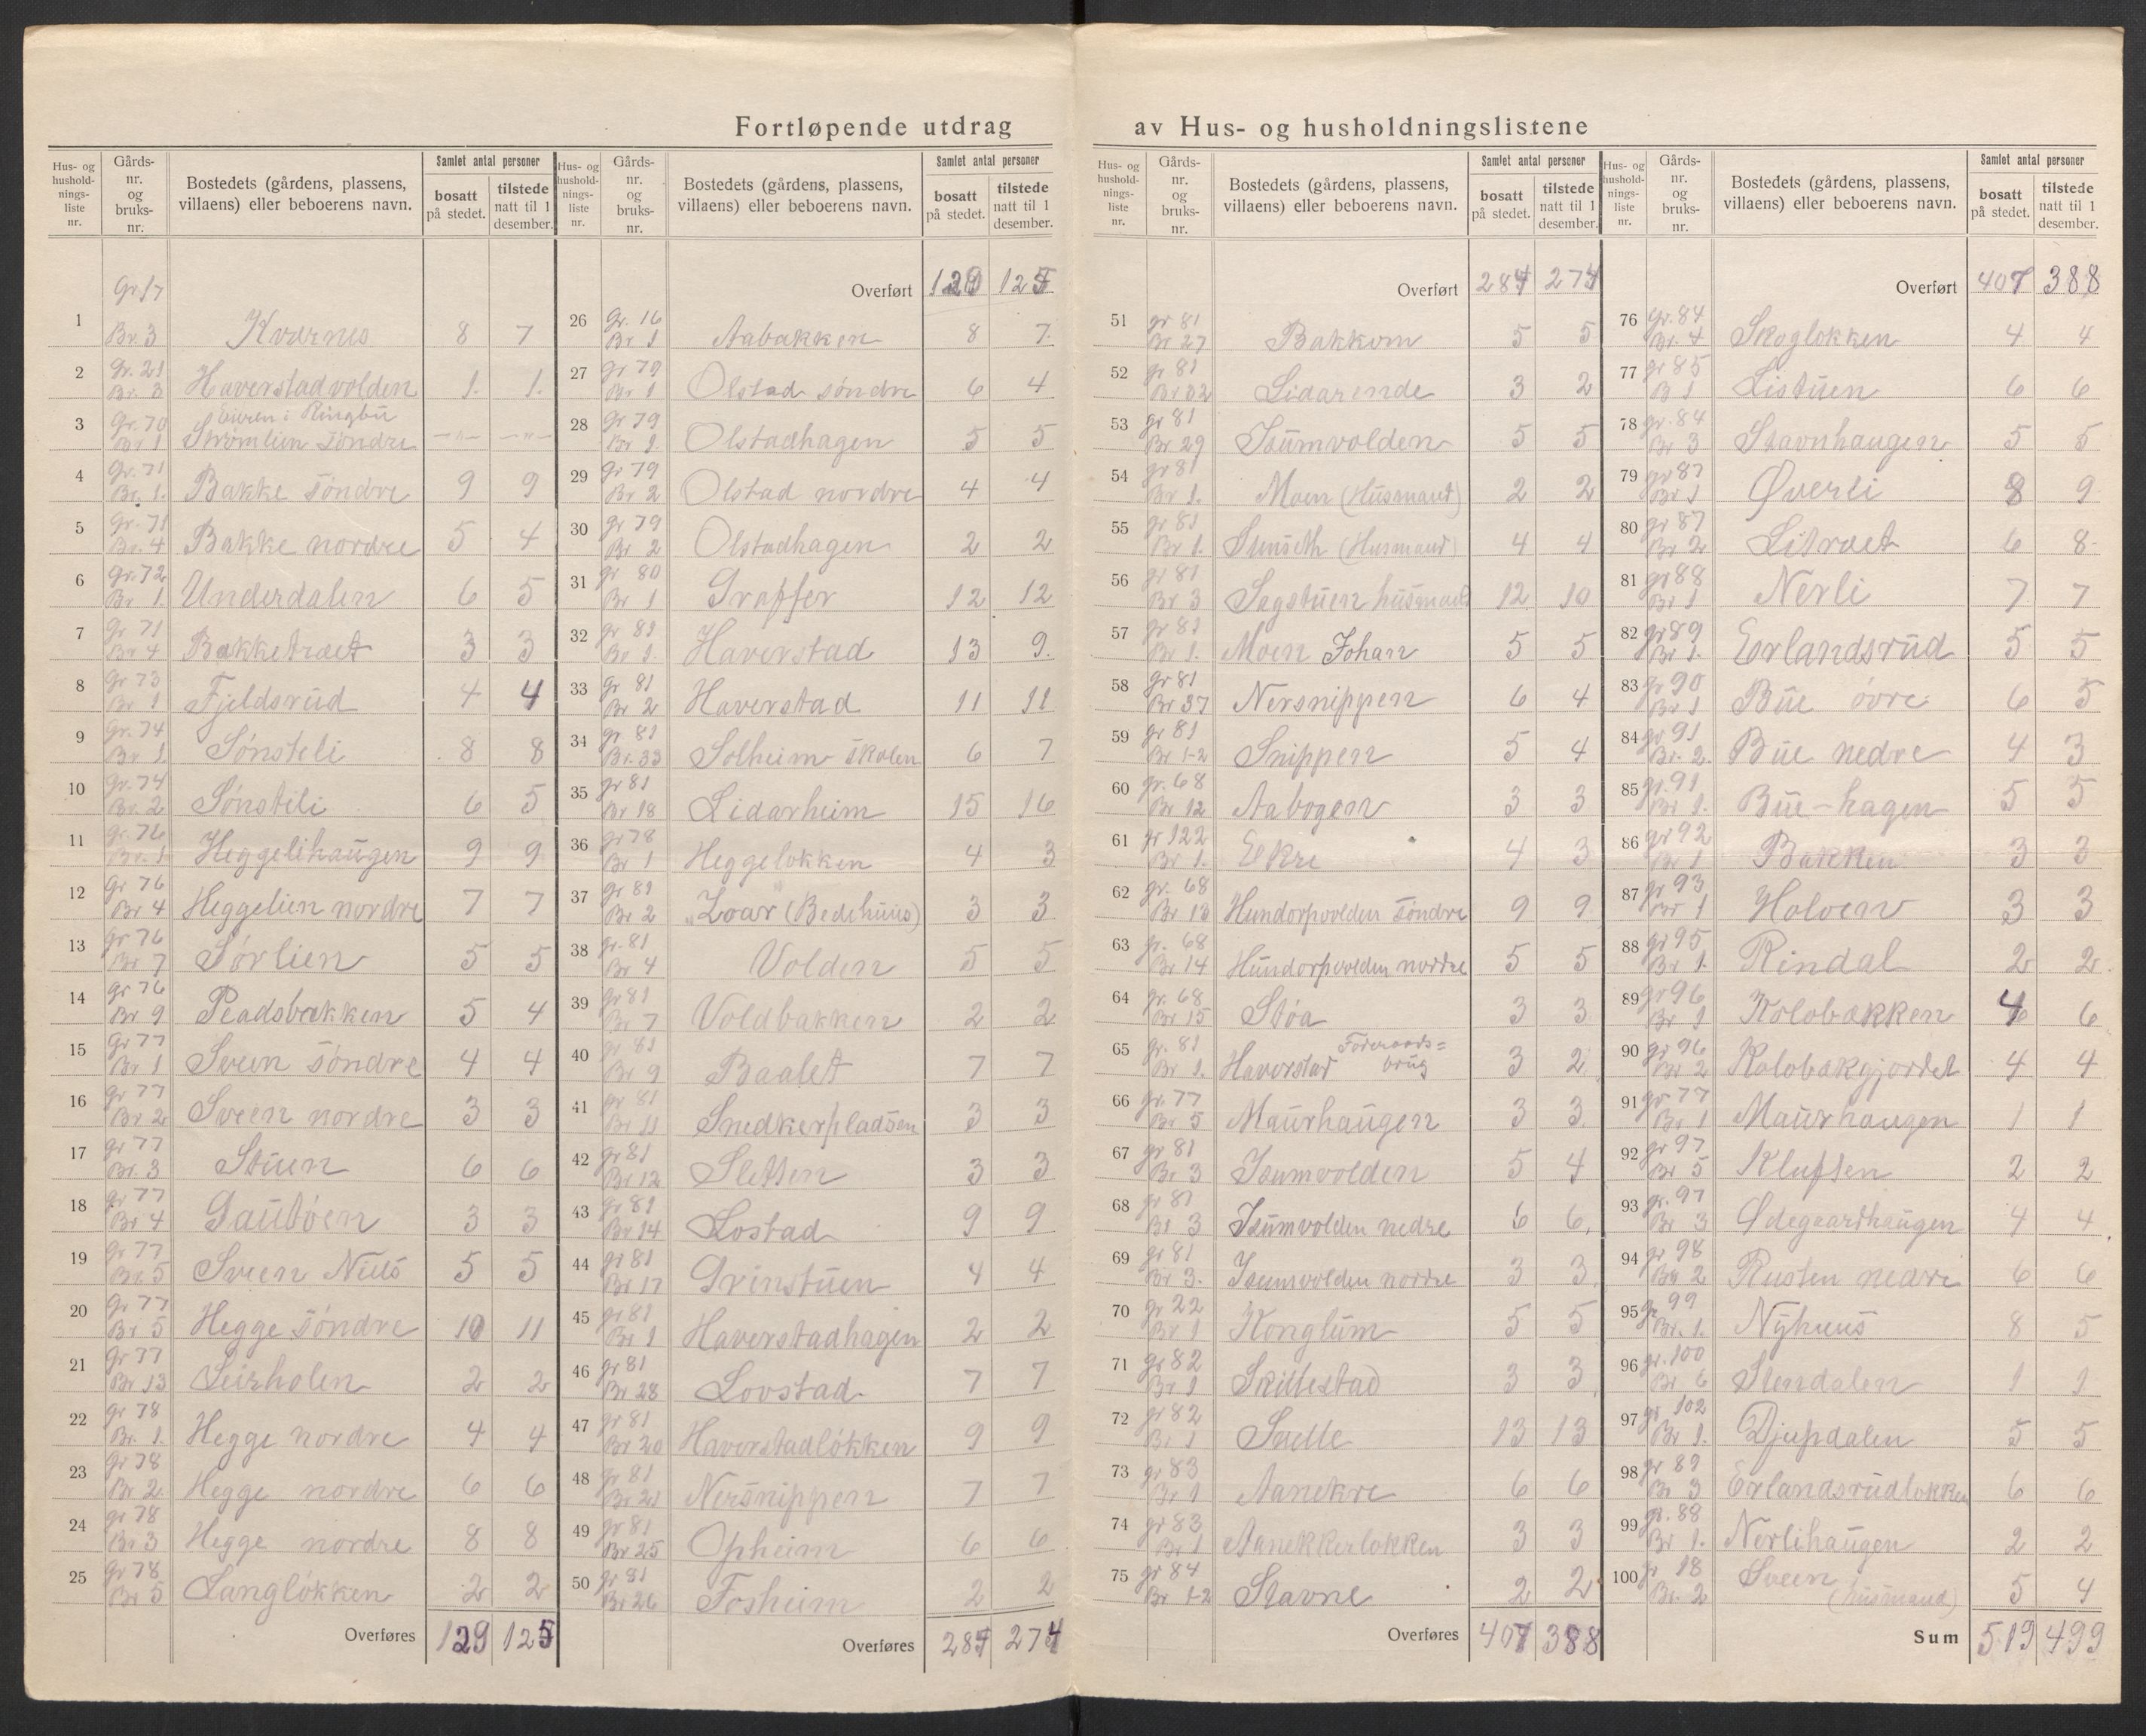 Fortløpende utdrag av Hus- og husholdningslistene
Hus- og hushold-nings-liste nr. Gårds-nr. og bruks-nr. Bostedets (gårdens, plassens, villaens) eller beboerens navn. Samlet antal personer bosatt på stedet. tilstede natt til 1 desember.
1 Gr. 17 Br. 3 Kvarnes 8 7
2 Gr. 21 Br. 3 Haverstadvolden 1. 1.
3 Gr. 70 Br 1 Eieren i Ringbu Strømlien söndre -"- -"-
4 Gr. 71 Br. 1. Bakke söndre 9 9
5 Gr. 71 Br. 4 Bakke nordre 5 4
6 Gr. 72 Br 1. Underdalen 6 5
7 Gr 71 Br 4 Bakketræet 3 3
8 Gr 73 Br 1 Fjeldsrud 4 4
9 Gr. 74 Br 1. Sónsteli 8 8
10 Gr. 74 Br. 2 Sónsteli 6 5
11 Gr. 76 Br. 1 Heggelihaugen 9 9
12 Gr 76 Br 4 Heggelien nordre 7 7
13 gr 76 Br 7 Sørlien 5 5
14 gr 76 Br 9 Peadsbakken 5 4
15 gr 77 Br 1 Sveen söndre 4 4
16 gr 77 Br 2 Sveen nordre 3 3
17 gr 77 Br. 3 Stuen 6 6
18 gr 77 Br 4 Gautöen 3 3
19 gr 77 Br. 5 Sveen Nils 5 5
20 Gr 77 Br 5 Hegge söndre 10 11
21 gr 77 Br 13 Leirholen 2 2
22 gr 78 Br. 1. Hegge nordre 4 4
23 gr 78 Br 2 Hegge nordre 6 6
24 gr 78 Br 3 Hegge nordre 8 8
25 gr 78 Br 5 Langlökken 2 2
Overføres 129 125
Hus- og hushold-nings-liste nr. Gårds-nr. og bruks-nr. Bostedets (gårdens, plassens, villaens) eller beboerens navn. Samlet antal personer bosatt på stedet. tilstede natt til 1 desember.
Overført 129 125
26 Gr. 16 Br 1 Aabakken 8 7
27 gr 79 Br 1 Olstad söndre 6 4
28 Gr 79 Br 1. Olstadhagen 5 5
29 Gr 79 Br 2 Olstad nordre 4 4
30 gr 79 Br 2 Olstadhagen 2 2
31 gr 80 Br 1 Graffer 12 12
32 gr 81 Br 1. Haverstad 13 9.
33 gr 81 Br 2 Haverstad 11 11
34 gr 81 Br. 33 Solheim skolen 6 7
35 gr 81 Br 18 Lidarheim 15 16
36 gr 78 Br 1 Heggelokken 4 3
37 gr 81 Br 2 "Zoar" (Bedehuus) 3 3
38 gr. 81 Br 4 Volden 5 5
39 gr 81 Br 7 Voldbakken 2 2
40 gr 81 Br 9 Baalet 7 7
41 gr 81 Br 11 Snedkerpladsen 3 3
42 gr 81 Br 12 Sletten 3 3
43 gr 81 Br 14 Lostad 9 9
44 gr 81 Br 17 Grinstuen 4 4
45 gr 81 Br 1 Haverstadhagen 2 2
46 gr 81 Br 28 Lovstad 7 7
47 gr 81 Br 20 Haverstadlökken 9 9
48 gr 81 Br 21 Nersnippen 7 7
49 gr 81 Br 25 Opheim 6 6
50 gr 81 Br 26 Fosheim 2 2
Overføres 284 274
Hus- og hushold-nings-liste nr. Gårds-nr. og bruks-nr. Bostedets (gårdens, plassens, villaens) eller beboerens navn. Samlet antal personer bosatt på stedet. tilstede natt til 1 desember.
Overført 284 274
51 gr 81 Br 27 Bakkom 5 5
52 gr 81 Br 32 Lidarende 3 2
53 gr 81 Br 29 Isumvolden 5 5
54 gr 81 Br 1. Moen (Husmand) 2 2
55 gr 81 Br 1. Sunseth (Husmand) 4 4
56 gr 81 Br 3 Sagstuen husmand 12 10
57 gr 81 Br 1. Moen Johan 5 5
58 gr 81 Br 37 Nersnippen 6 4
59 gr 81 Br 1-2 Snippen 5 4
60 gr. 68 Br 12 Aabogen 3 3
61 gr 122 Br 1. Ekre 4 3
62 gr. 68 Br 13 Hundorpvolden söndre 9 9
63 gr. 68 Br 14 Hundorpvolden nordre 5 5
64 gr. 68 Br 15 Støa 3 3
65 gr. 81 Br 1. Haverstad Föderaads= brug 3 2
66 gr. 77 Br. 5 Maurhaugen 3 3
67 gr 81 Br. 3 Isumvolden 5 4
68 gr 81 Br 3 Isumvolden nedre 6 6
69 gr 81 Br 3. Isumvolden nordre 3 3
70 gr 22 Br 1 Konglum 5 5
71 gr 82 Br 1 Skillestad 3 3
72 gr 82 Br 1 Sælle 13 13
73 gr 83 Br 1 Aanekre 6 6
74 gr 83 Br 1 Aanekkerlokken 3 3
75 gr 84 Br 1-2 Stavne 2 2
Overføres 407 388
Hus- og hushold-nings-liste nr. Gårds-nr. og bruks-nr. Bostedets (gårdens, plassens, villaens) eller beboerens navn. Samlet antal personer bosatt på stedet. tilstede natt til 1 desember.
Overført 407 388
76 Gr. 84 Br. 4 Skoglokken 4 4
77 gr 85 B 1 Listuen 6 6
78 gr. 84 Br 3 Stavnhaugen 5 5
79 gr 87 Br 1 Øverli 8 9
80 gr 87 Br 2 Litræt 6 8
81 gr 88 Br 1 Nerli 7 7
82 gr 89 Br 1. Erlandsrud 5 5
83 gr 90 Br 1 Bue övre 6 5
84 gr 91 Br. 2. Bue nedre 4 3
85 gr. 91 Br 1. Bue-hagen 5 5
86 gr 92 Br 1 Bakken 3 3
87 gr 93 Br 1 Holoen 3 3
88 gr 95 Br 1. Rindal 2 2
89 gr 96 Br 1 Kolobakken 4 6
90 gr 96 Br 2 Kolobakgjordet 4 4
91 gr 77 Br 1 Maurhaugen 1 1
92 gr 97 Br 5 Kluften 2 2
93 gr. 97 Br 3 Ødegaardhaugen 4 4
94 gr 98 Br 2 Rusten nedre 6 6
95 gr 99 Br. 1. Nyhuus 8 5
96 gr. 100 Br 6 Stendalen 1 1
97 gr 102 Br 1. Djupdalen 5 5
98 gr 89 Br 3 Erlandsrudlokken 6 6
99 gr. 88 Br 1. Nerlihaugen 2 2
100 gr 18 Br. 2 Sveen (husmand) 5 4
Sum 519 499